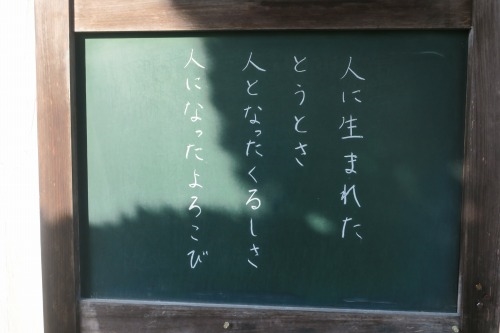 人に生まれた
とうとさ
人となったくるしさ
人になったよろこび